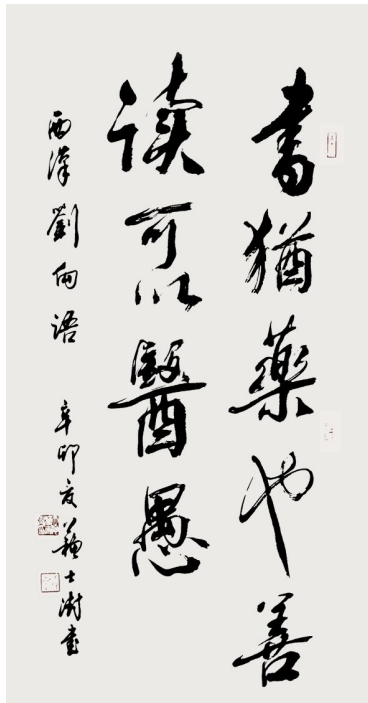 書猶藥也善
读可以醫愚
西漢劉向語 辛卯夏 蘇士澍書